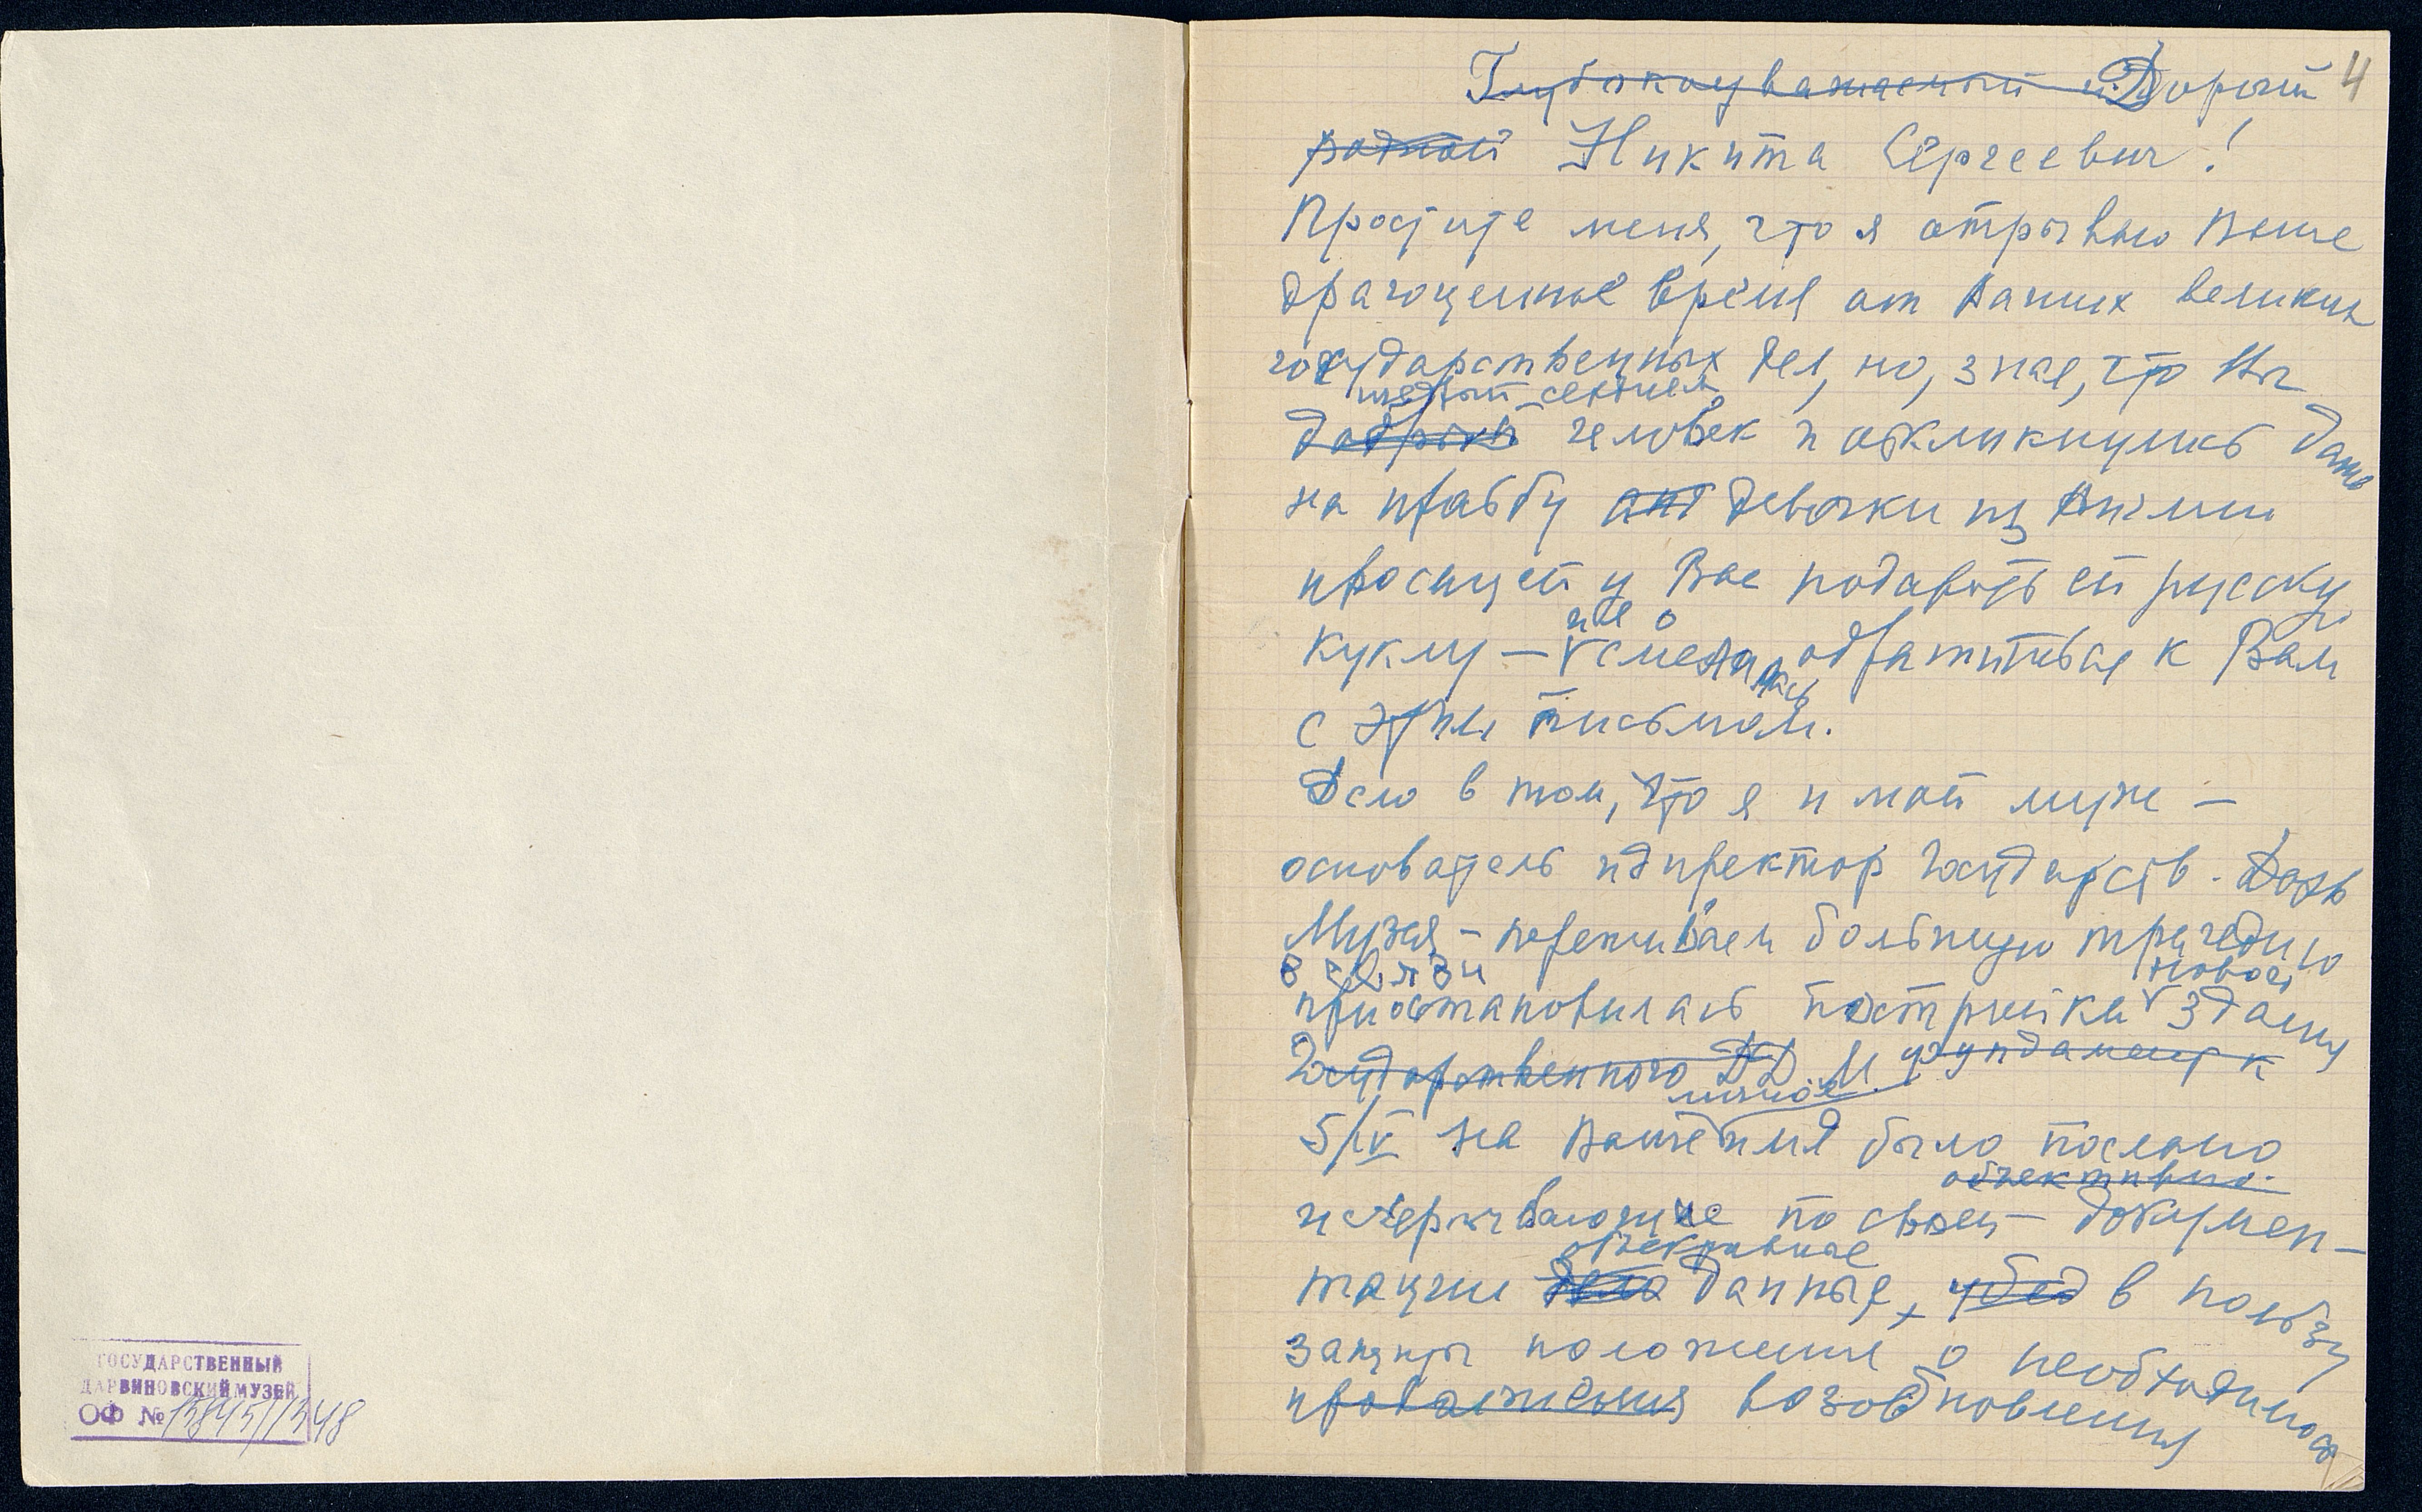 ГОСУДАРСТВЕННЫЙ
ДАРВИНОВСКИЙ МУЗЕЙ
ОФ № 13845/1348
4
Глубокоуважаемый и Дорогой
родной Никита Сергеевич!
Простите меня, что я отрываю Ваше
драгоценное время от Ваших великих
государственных дел, но, зная, что Вы
щедрый сердцем
добрый человек и откликнулись даже
на просьбу девочки из Англии
просящей у Вас подарить ей русскую
куклу — осмелилась обратиться к Вам
с этим письмом.
Дело в том, что я и мой муж —
основатель и директор Государств. Дарв
Музея — переживаем большую трагедию
в связи новой
приостановилась постройки здания
Государственного Д. М. фундамент к
личное
5/IV на Ваше имя было послано
объективно.
исчерпывающие по своей докумен-
объективные
тации дела данные, убед в пользу
защиты положения о необходимости
продолжения возобновления